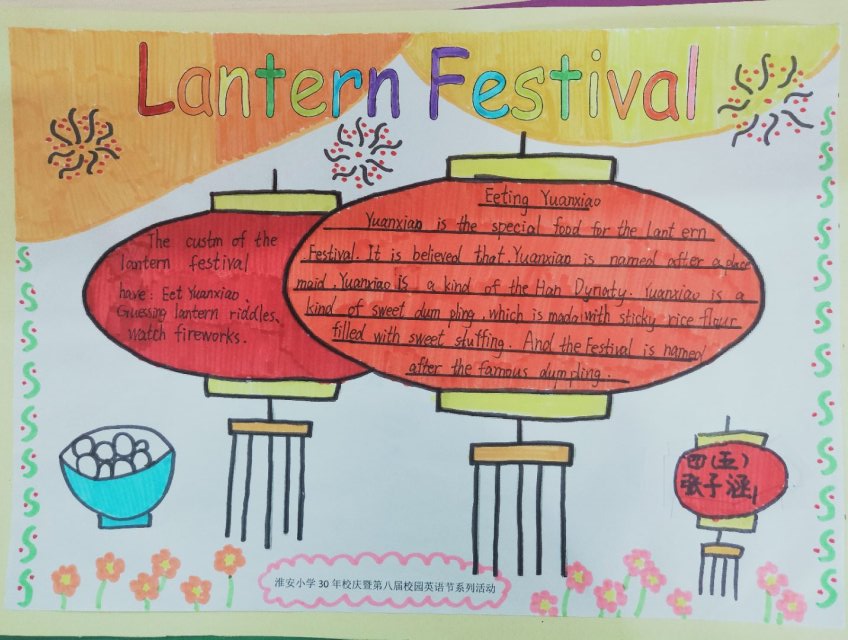 Lantern Festival
The custm of the
lantern festival
have: Eet Yuanxiao、
Guessing lantern riddles、
watch fireworks.
Eeting Yuanxiao
Yuanxiao is the special food for the lantern
Festival. It is believed that Yuanxiao is named after a place
maid. Yuanxiao is a kind of the Han Dynaty. Yuanxiao is a
kind of sweet dumpling, which is made with sticky rice flour
filled with sweet stuffing. And the Festival is named
after the famous dumpling.
四(五)
张子涵
淮安小学30年校庆暨第八届校园英语节系列活动